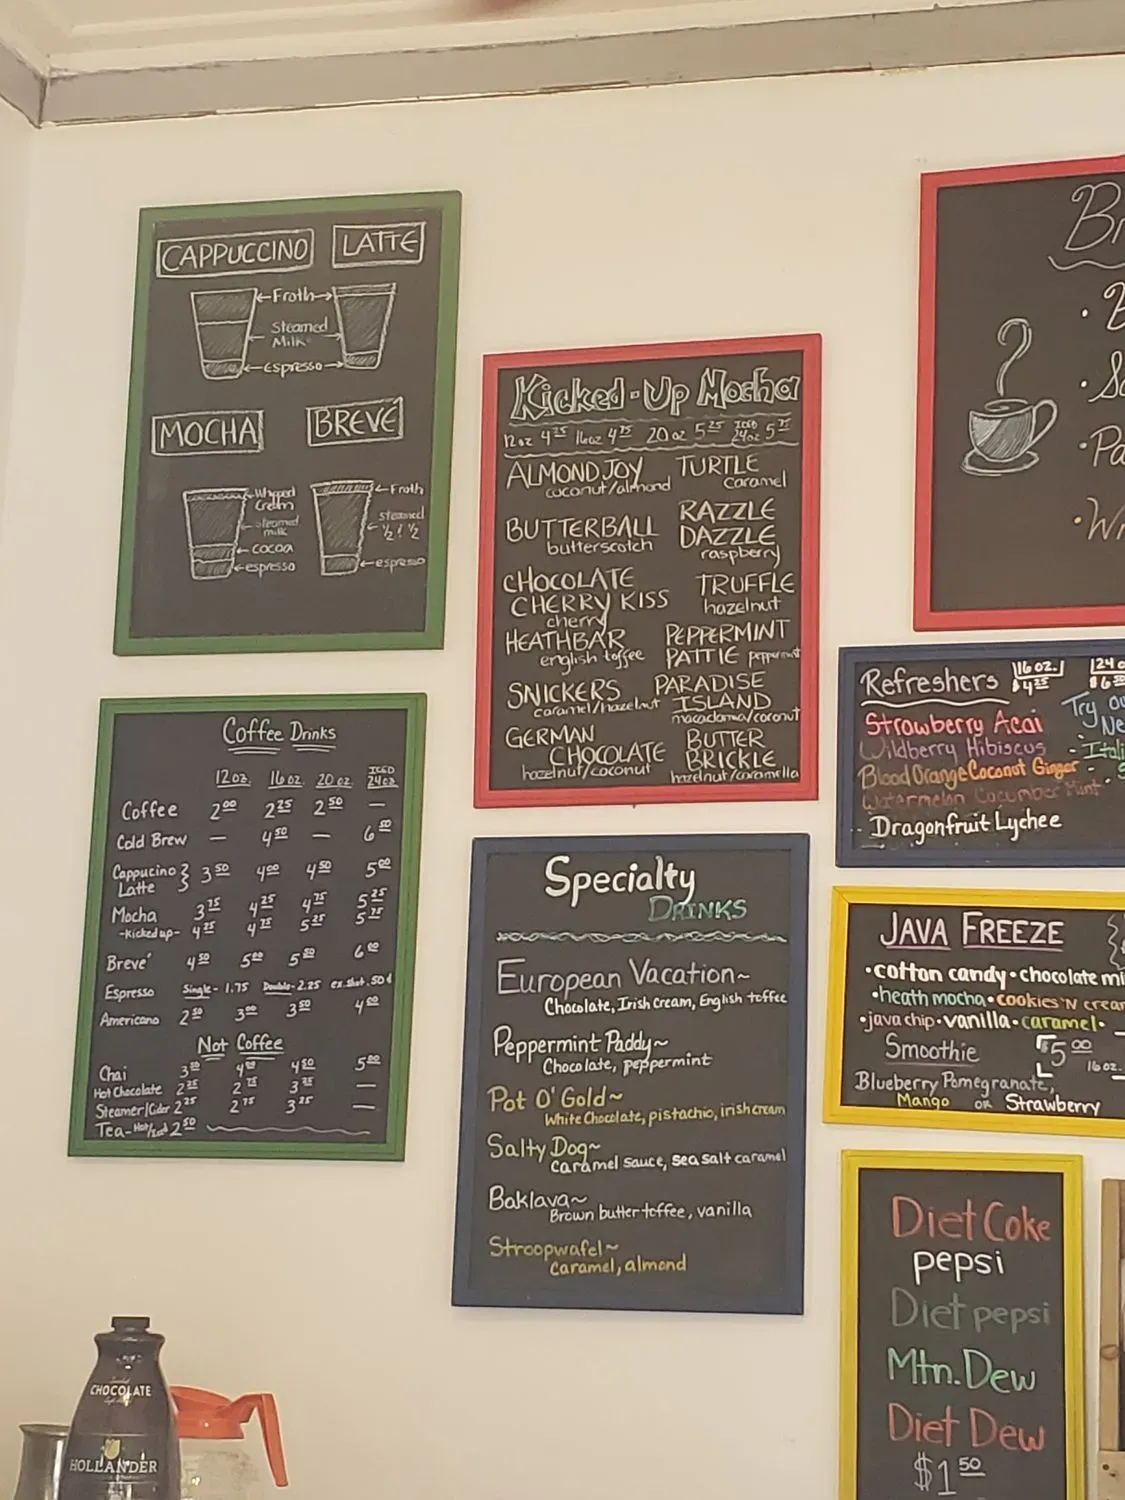 CAPPUCCINO LATTE
←Froth→
Steamed
Milk
←espresso→
MOCHA BREVE
Whipped
Cream
steamed
milk
cocoa
espresso
Froth
steamed
½ & ½
espresso
Coffee Drinks
12oz. 16 oz. 20 oz. ICED 24oz
Coffee 2.00 2.25 2.50 —
Cold Brew — 4.50 — 6.50
Cappucino } 3.50 4.00 4.50 5.00
Latte
Mocha 3.75 4.25 4.75 5.25
-Kicked up- 4.25 4.75 5.25 5.75
Breve' 4.50 5.00 5.50 6.00
Espresso Single - 1.75 Double - 2.25 ex. shot .50¢
Americano 2.50 3.00 3.50 4.00
Not Coffee
Chai 3.50 4.00 4.50 5.00
Hot Chocolate 2.25 2.75 3.25 —
Steamer/Cider 2.25 2.75 3.25 —
Tea- Hot/Iced 2.50
Kicked-Up Mocha
12oz 4.25 16oz 4.75 20oz 5.25 ICED 24oz 5.75
ALMOND JOY
coconut/almond
BUTTERBALL
butterscotch
CHOCOLATE
CHERRY KISS
cherry
HEATHBAR
english toffee
SNICKERS
caramel/hazelnut
GERMAN
CHOCOLATE
hazelnut/coconut
TURTLE
caramel
RAZZLE
DAZZLE
raspberry
TRUFFLE
hazelnut
PEPPERMINT
PATTIE peppermint
PARADISE
ISLAND
macadamia/coconut
BUTTER
BRICKLE
hazelnut/caramella
Specialty
DRINKS
European Vacation~
Chocolate, Irish cream, English toffee
Peppermint Paddy~
Chocolate, peppermint
Pot O' Gold~
White Chocolate, pistachio, irish cream
Salty Dog~
caramel sauce, sea salt caramel
Baklava~
Brown butter toffee, vanilla
Stroopwafel~
caramel, almond
Refreshers 16 oz. $4.25
Strawberry Acai
Wildberry Hibiscus
Blood Orange Coconut Ginger
Watermelon Cucumber Mint
Dragonfruit Lychee
Try
JAVA FREEZE
•cotton candy•chocolate
•heath mocha•cookies 'N
•java chip•vanilla•caramel•
Smoothie $5.00
16 oz.
Blueberry Pomegranate,
Mango or Strawberry
Diet Coke
pepsi
Diet pepsi
Mtn. Dew
Diet Dew
$1.50
CHOCOLATE
HOLLANDER